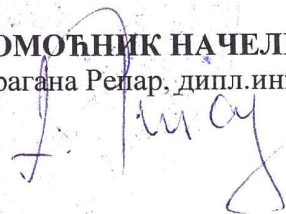 ОМОЋНИК НАЧЕЛ
рагана Репар, дипл.ин